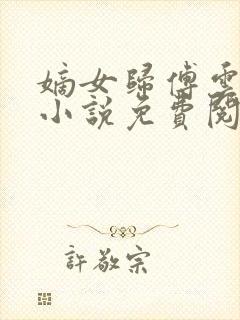 嫡女歸傅雲
小說免費閱
許敬宗